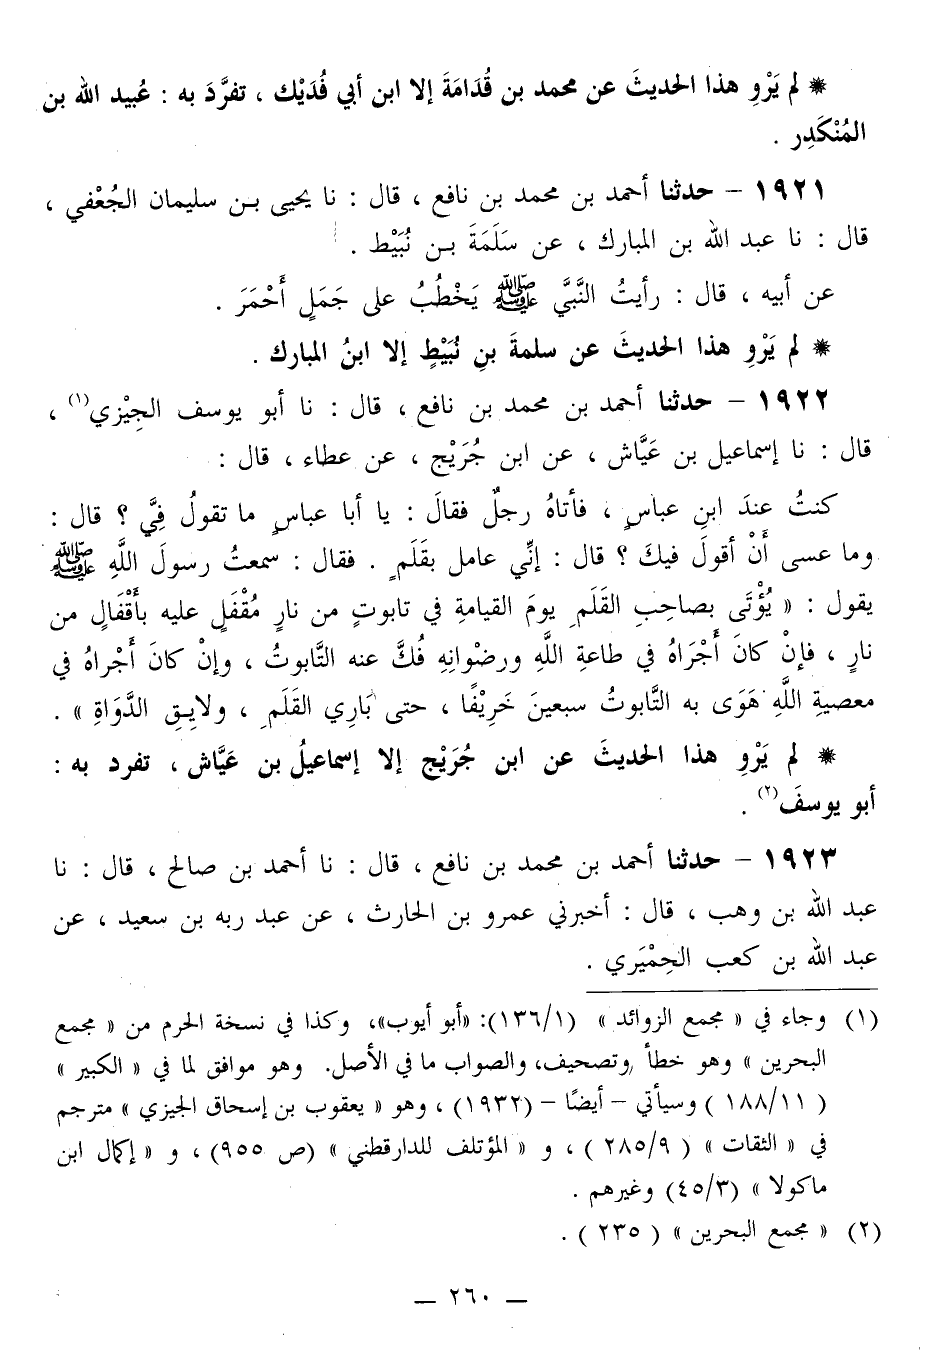 * لم يَرْوِ هذا الحديثَ عن محمد بن قُدَامَةَ إلا ابن أبي فُدَيْك ، تفرَّدَ به : عُبيد الله بن
المُنْكَدِر .
١٩٢١ – حدثنا أحمد بن محمد بن نافع ، قال : نا يحيى بـن سليمان الجُعْفي ،
قال : نا عبد الله بن المبارك ، عن سَلَمَةَ بـن نُبَيْط .
عن أبيه ، قال : رأيتُ النَّبيَّ ﷺ يَخْطُبُ على جَمَلٍ أَحْمَرَ .
* لم يَرْوِ هذا الحديثَ عن سلمةَ بنِ نُبَيْطٍ إلا ابنُ المبارك .
١٩٢٢ – حدثنا أحمد بن محمد بن نافع ، قال : نا أبو يوسف الجِيْزي(١) ،
قال : نا إسماعيل بن عَيَّاش ، عن ابن جُرَيْج ، عن عطاء ، قال :
كنتُ عندَ ابنِ عباسٍ ، فأتاهُ رجلٌ فقالَ : يا أبا عباسٍ ما تقولُ فِيَّ ؟ قال :
وما عسى أَنْ أقولَ فيكَ ؟ قال : إنِّي عامل بقَلَمٍ . فقال : سمعتُ رسولَ اللَّهِ ﷺ
يقول : « يُؤْتَى بصاحِبِ القَلَمِ يومَ القيامةِ في تابوتٍ من نارٍ مُقْفَلٍ عليه بأَقْفَالٍ من
نارٍ ، فإنْ كانَ أَجْرَاهُ في طاعةِ اللَّهِ ورضْوانِهِ فُكَّ عنه التَّابوتُ ، وإنْ كانَ أَجْراهُ في
معصيةِ اللَّهِ هَوَى به التَّابوتُ سبعينَ خَرِيْفًا ، حتى بَارِي القَلَمِ ، ولايِقِ الدَّوَاةِ » .
* لم يَرْوِ هذا الحديثَ عن ابن جُرَيْج إلا إسماعيلُ بن عَيَّاش ، تفرد به :
أبو يوسفَ(٢) .
١٩٢٣ – حدثنا أحمد بن محمد بن نافع ، قال : نا أحمد بن صالح ، قال : نا
عبد الله بن وهب ، قال : أخبرني عمرو بن الحارث ، عن عبد ربه بن سعيد ، عن
عبد الله بن كعب الحِمْيَري .
(١) وجاء في « مجمع الزوائد » (١٣٦/١): «أبو أيوب»، وكذا في نسخة الحرم من « مجمع
البحرين » وهو خطأ وتصحيف، والصواب ما في الأصل. وهو موافق لما في « الكبير »
( ١٨٨/١١ ) وسيأتي – أيضًا – (١٩٣٢) ، وهو « يعقوب بن إسحاق الجيزي » مترجم
في « الثقات » ( ٢٨٥/٩ ) ، و « المؤتلف للدارقطني » (ص ٩٥٥) ، و « إكمال ابن
ماكولا » (٤٥/٣) وغيرهم .
(٢) « مجمع البحرين » ( ٢٣٥ ) .
— ٢٦٠ —